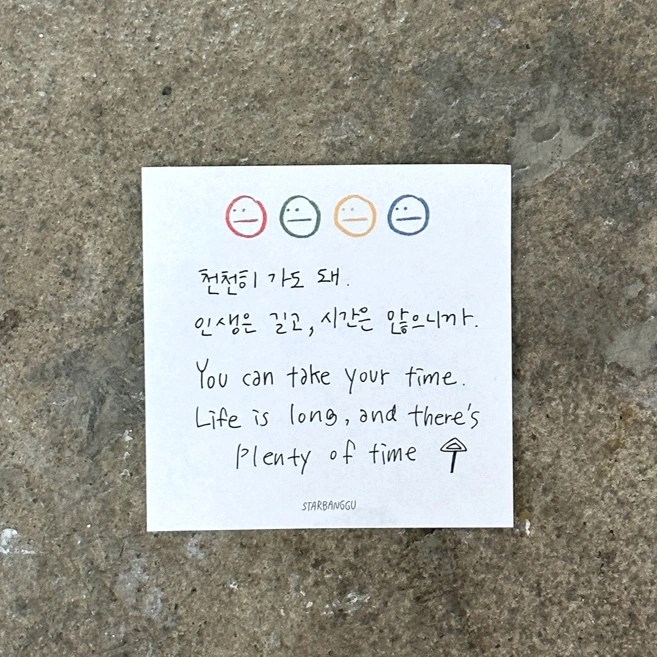 천천히 가도 돼.
인생은 길고, 시간은 많으니까.
You can take your time.
Life is long, and there's
plenty of time
STARBANGGU